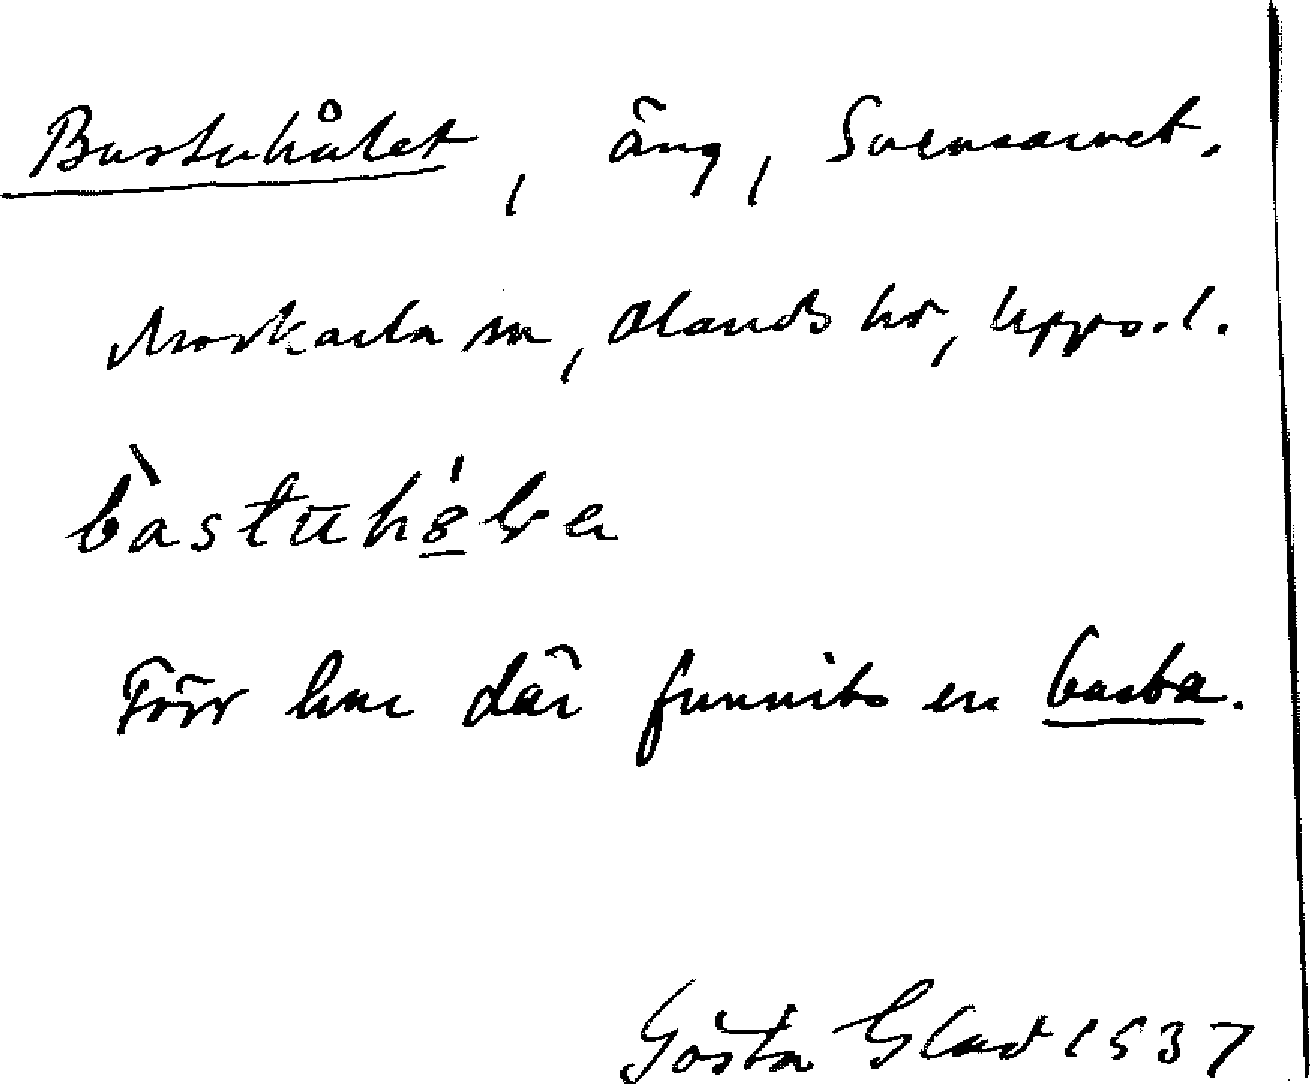 Bastuhålet, äng, Svensarvet.
Morkarla sn, Olands hd, Upps. l.
bàstuhø̱'ɬɐ
Förr har där funnits en basta.
Gösta Glad 1937